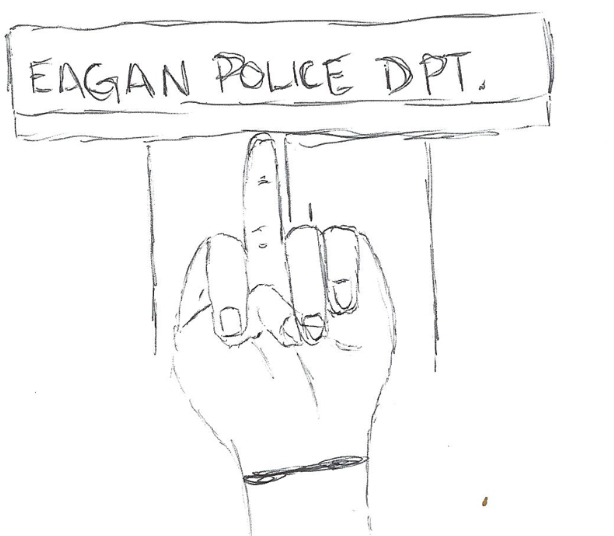 EAGAN POLICE DPT.